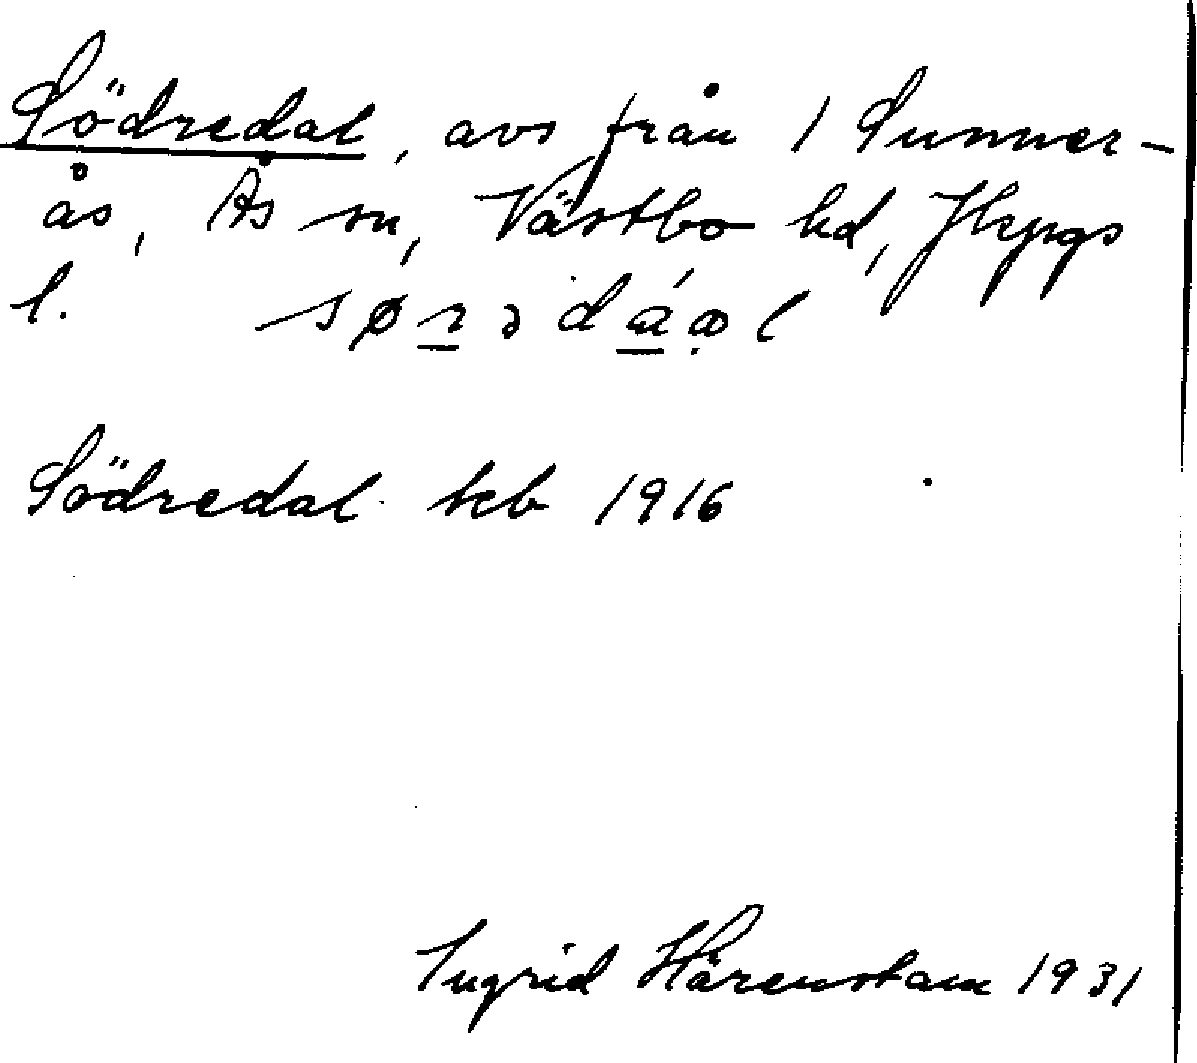 Södredal, avs från 1 Sunner-
ås, Ås sn, Västbo hd, Jkpgs
l. søɿədáɑl
Södredal kb 1916
Ingrid Hårenstam 1931